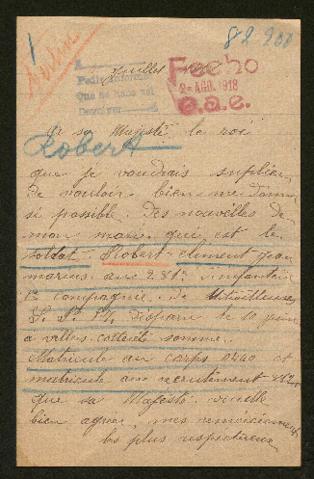 82.900
Juillet
Fecho
2- AGO. 1918
o.a.e.
A sa Majesté le roi
Robert
que je voudrais supplier
de vouloir bien me donner
si possible. Des nouvelles de
mon mari qui est le
soldat Robert clément jean
marius au 281e infanterie
Compagnie de Mitrailleuses
disparu le 10 juin
a villers somme.
Matricule au corps et
matricule au recrutement
Que sa Majesté veuille
bien agréer, mes remerciements
les plus respectueux